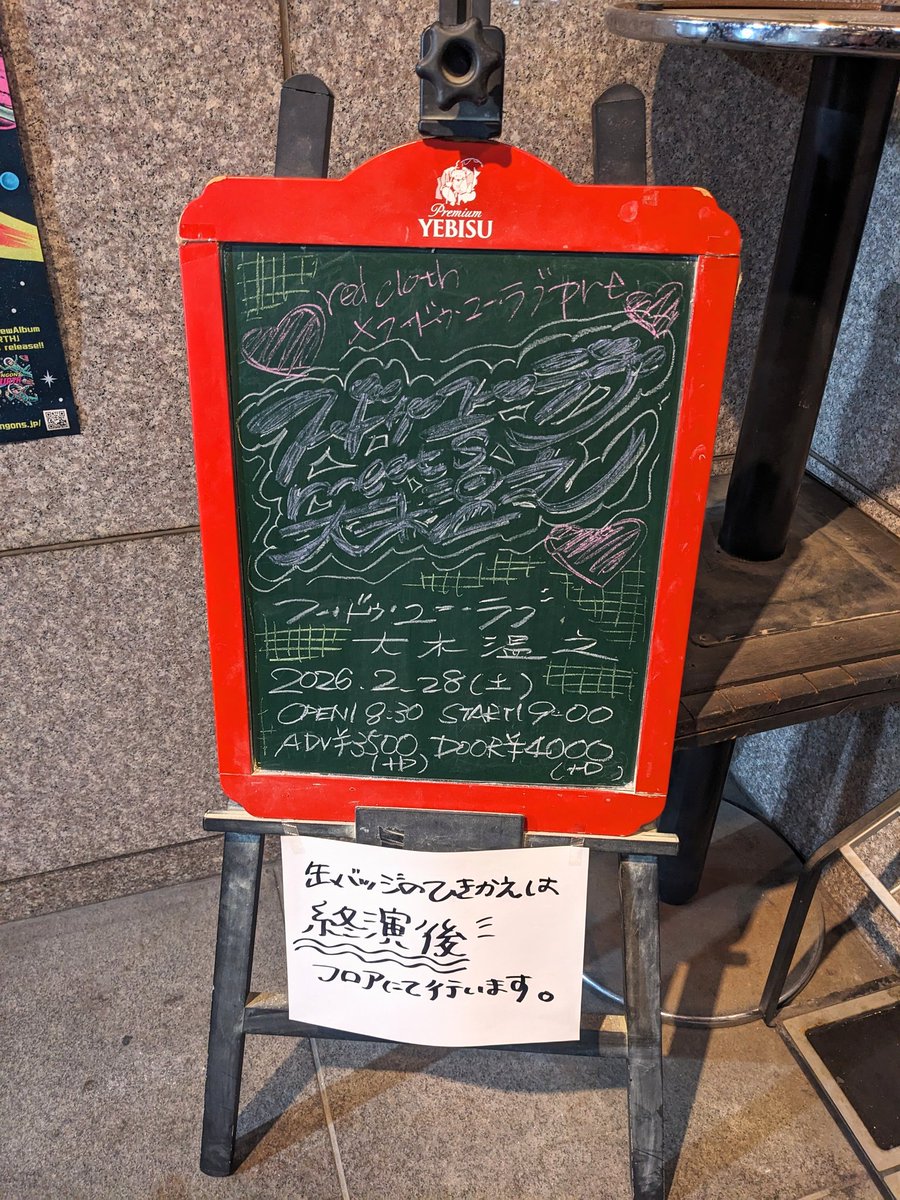 Premium
YEBISU
red cloth
×フー・ドゥ・ユー・ラブ pre.
フー・ドゥ・ユー・ラブ
meets
大木温之
フー・ドゥ・ユー・ラブ
大木温之
2026.2.28(土)
OPEN18:30 START19:00
ADV¥3500 DOOR¥4000
(+D) (+D)
缶バッジのひきかえは
終演後
フロアにて行います。
ewAlbum
RTH」
release!!
ngons.jp/